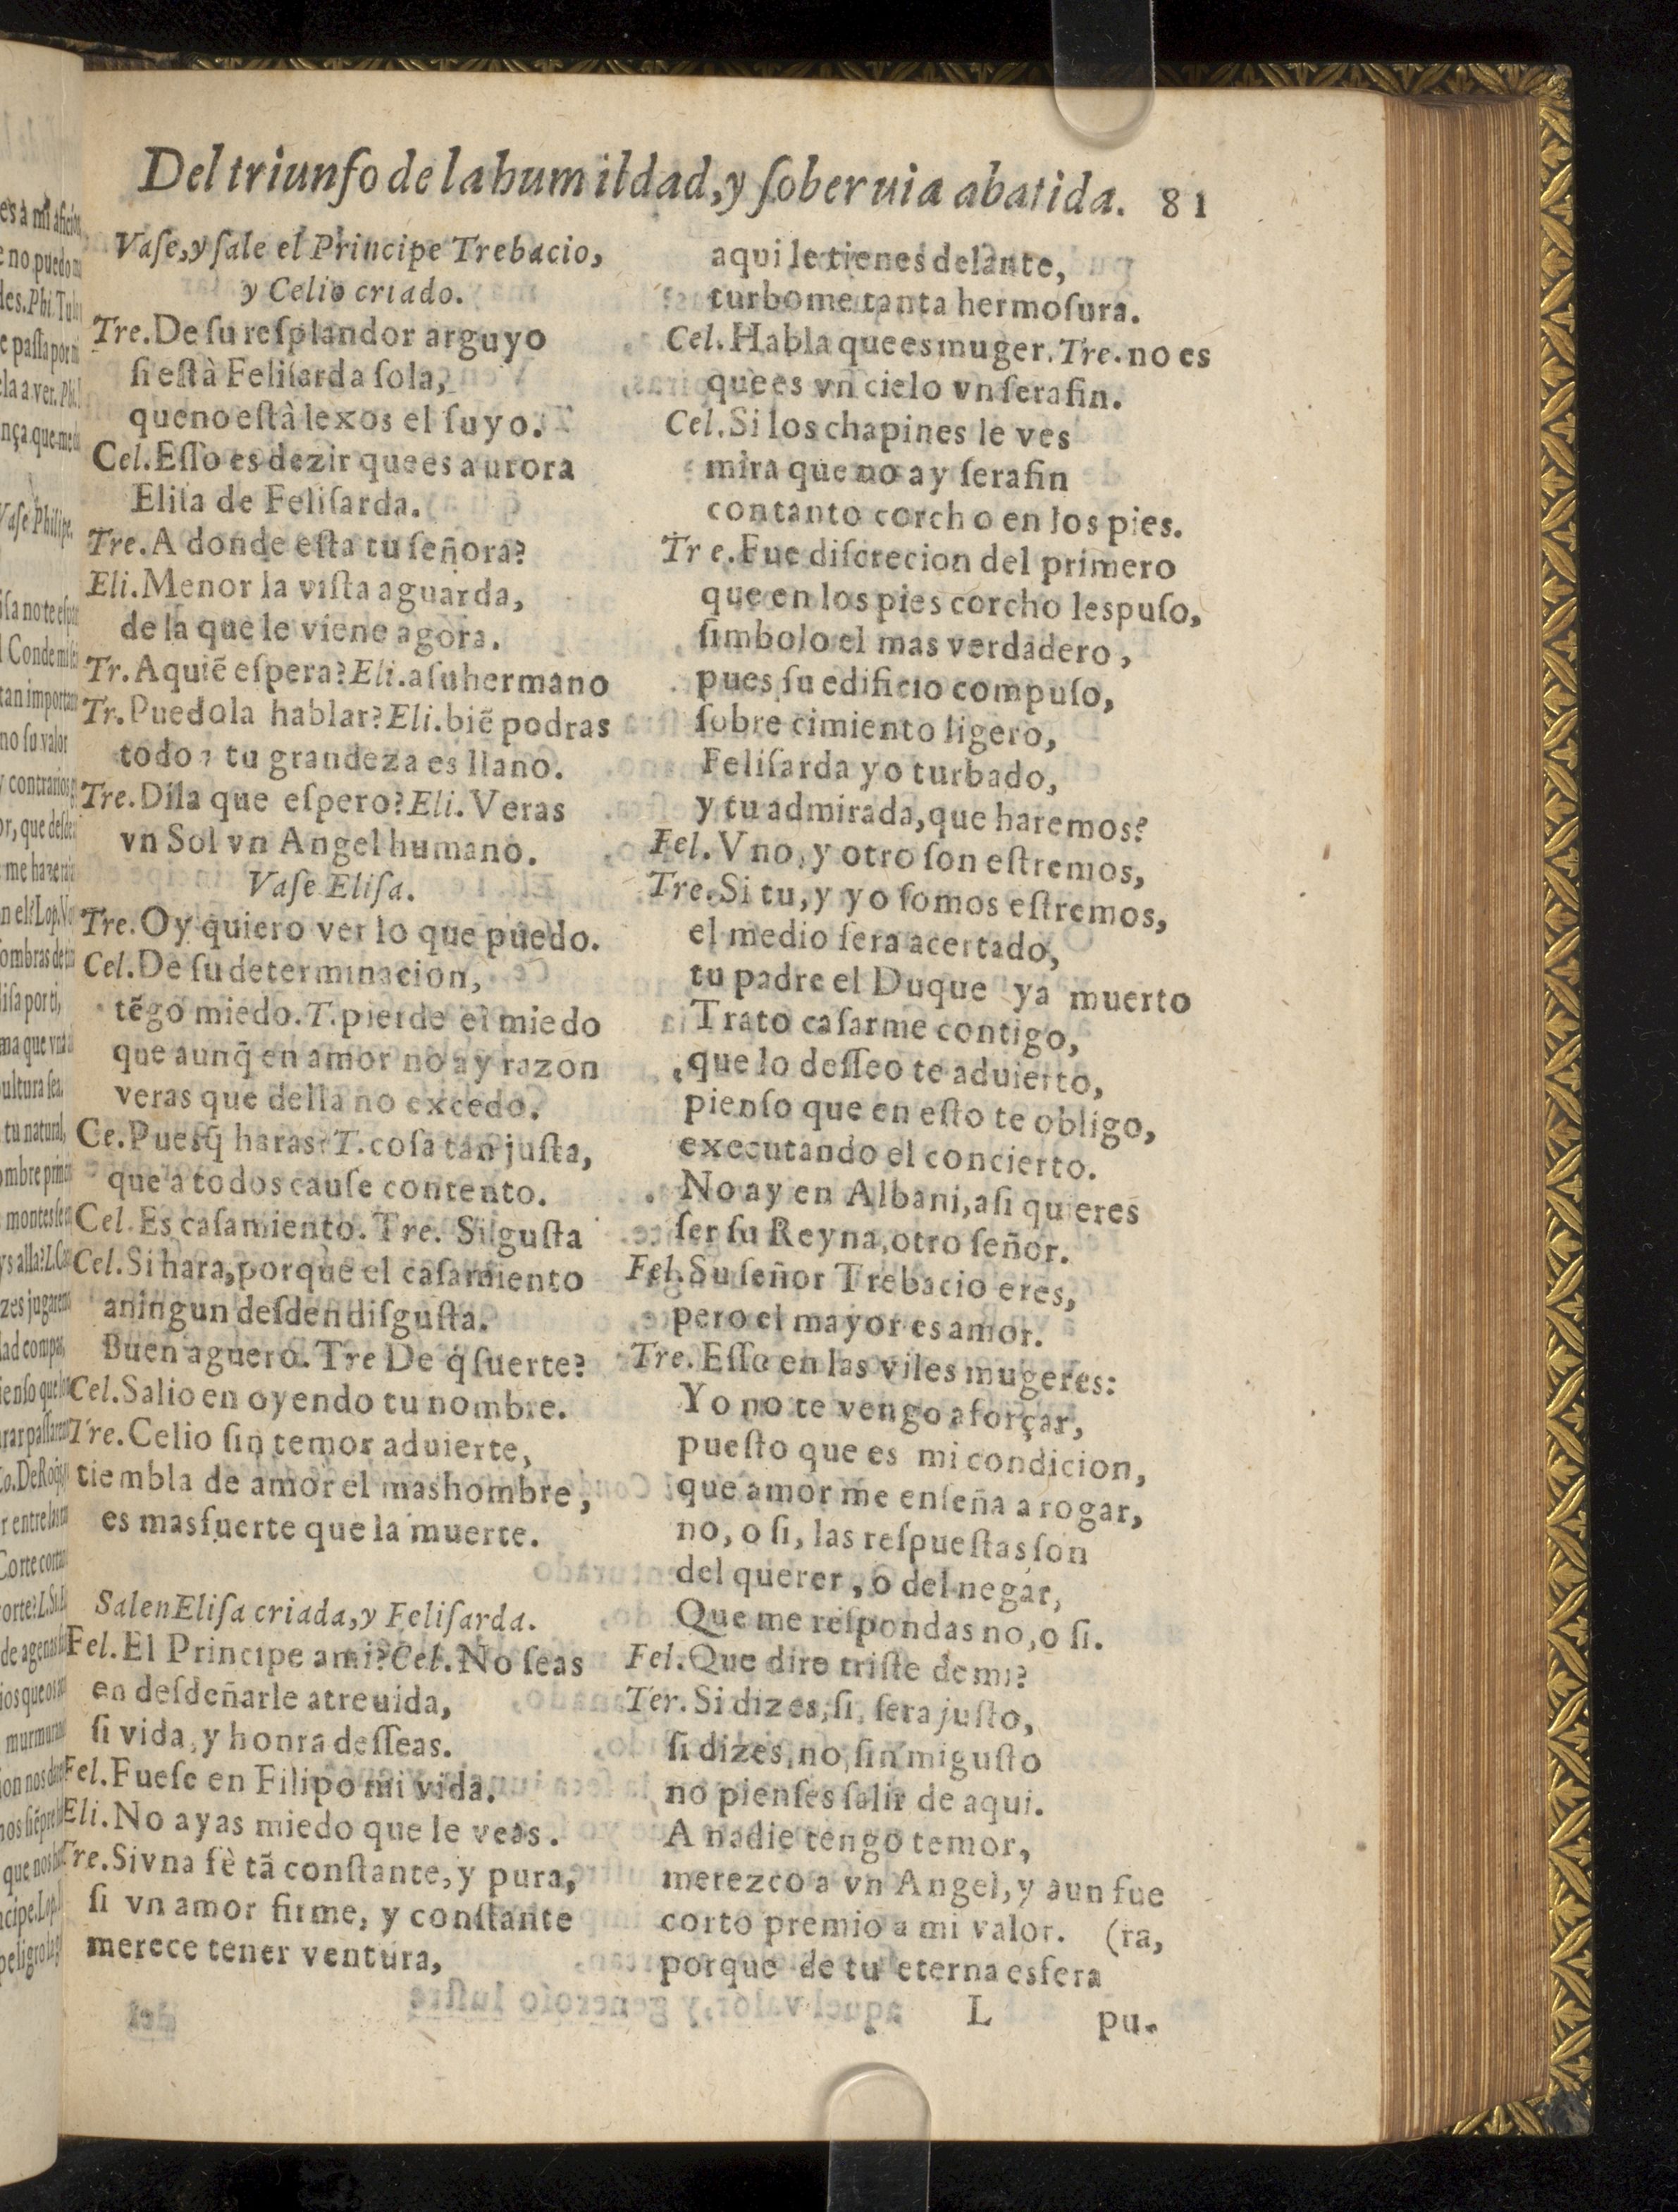 Del triunfo de la humildad, y ſoberuia abatida. 81
Vaſe, y ſale el Principe Trebacio,
y Celio criado.
Tre. De ſu reſplandor arguyo
ſi eſtà Feliſarda ſola,
que no eſtà lexos el ſuyo.
Cel. Eſſo es dezir que es aurora
Eliſa de Feliſarda.
Tre. A donde eſta tu ſeñora?
Eli. Menor la viſta aguarda,
de la que le viene agora.
Tr. A quiē eſpera? Eli. a ſu hermano
Tr. Puedola hablar? Eli. biē podras
todo a tu grandeza es llano.
Tre. Dila que eſpero? Eli. Veras
vn Sol vn Angel humano.
Vaſe Eliſa.
Tre. Oy quiero ver lo que puedo.
Cel. De ſu determinacion,
tēgo miedo. T. pierde el miedo
que aunq̄ en amor no ay razon
veras que della no excedo.
Ce. Pues q̄ haras? T. coſa tan juſta,
que a todos cauſe contento.
Cel. Es caſamiento. Tre. Si guſta
Cel. Si hara, porque el caſamiento
a ningun deſden diſguſta.
Buen aguero. Tre De q̄ ſuerte?
Cel. Salio en oyendo tu nombre.
Tre. Celio ſin temor aduierte,
tiembla de amor el mas hombre,
es mas fuerte que la muerte.
Salen Eliſa criada, y Feliſarda.
Fel. El Principe a mi? Cel. No ſeas
en deſdeñarle atreuida,
ſi vida, y honra deſſeas.
Fel. Fueſe en Filipo mi vida.
Eli. No ayas miedo que le veas.
Tre. Si vna fè tā conſtante, y pura,
ſi vn amor firme, y conſtante
merece tener ventura,
aqui le tienes delante,
turbome tanta hermoſura.
Cel. Habla que es muger. Tre. no es
que es vn cielo vn ſerafin.
Cel. Si los chapines le ves
mira que no ay ſerafin
con tanto corcho en los pies.
Tre. Fue diſcrecion del primero
que en los pies corcho les puſo,
ſimbolo el mas verdadero,
pues ſu edificio compuſo,
ſobre cimiento ligero,
Feliſarda yo turbado,
y tu admirada, que haremos?
Fel. Vno, y otro ſon eſtremos,
Tre. Si tu, y yo ſomos eſtremos,
el medio ſera acertado,
tu padre el Duque ya muerto
Trato caſarme contigo,
que lo deſſeo te aduierto,
pienſo que en eſto te obligo,
executando el concierto.
No ay en Albani, aſi quieres
ſer ſu Reyna, otro ſeñor.
Fel. Su ſeñor Trebacio eres,
pero el mayor es amor.
Tre. Eſſo en las viles mugeres:
Yo no te vengo a forçar,
pueſto que es mi condicion,
que amor me enſeña a rogar,
no, o ſi, las reſpueſtas ſon
del querer, o del negar,
Que me reſpondas no, o ſi.
Fel. Que dire triſte de mi?
Ter. Si dizes, ſi, ſera juſto,
ſi dizes, no, ſin mi guſto
no pienſes ſalir de aqui.
A nadie tengo temor,
merezco a vn Angel, y aun fue
corto premio a mi valor. (ra,
porque de tu eterna esfera
L pu-